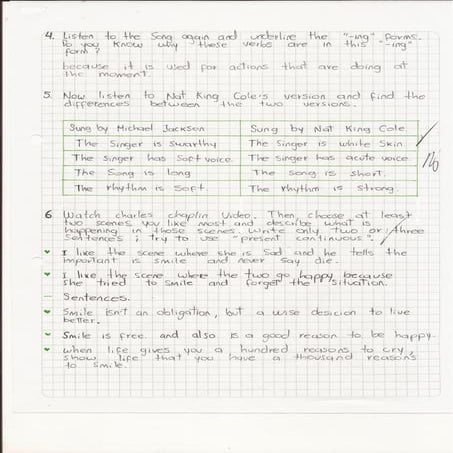 4. Listen to the song again and underline the "-ing" forms.
Do you know why these verbs are in this "-ing"
form?
because it is used for actions that are doing at
the moment.
5. Now listen to Nat King Cole's version and find the
differences between the two versions.
Sung by Michael Jackson Sung by Nat King Cole
The Singer is swarthy The Singer is white Skin.
The Singer has Soft voice. The Singer has acute voice
The Song is long The song is short.
The rhythm is Soft. The rhythm is strong.
6 Watch charles chaplin Video. Then choose at least
two scenes you like most and describe what is
happening in those scenes. Write only two or three
Sentences; try to use "present continuous".
I like the scene where she is Sad and he tells the
important is smile and never say die.
I like the scene where the two go happy because
she tried to smile and forget the situation.
— Sentences.
Smile isn't an obligation, but a wise desicion to live
better.
Smile is free and also is a good reason to be happy.
When life gives you a hundred reasons to cry,
show life that you have a thousand reasons
to smile.